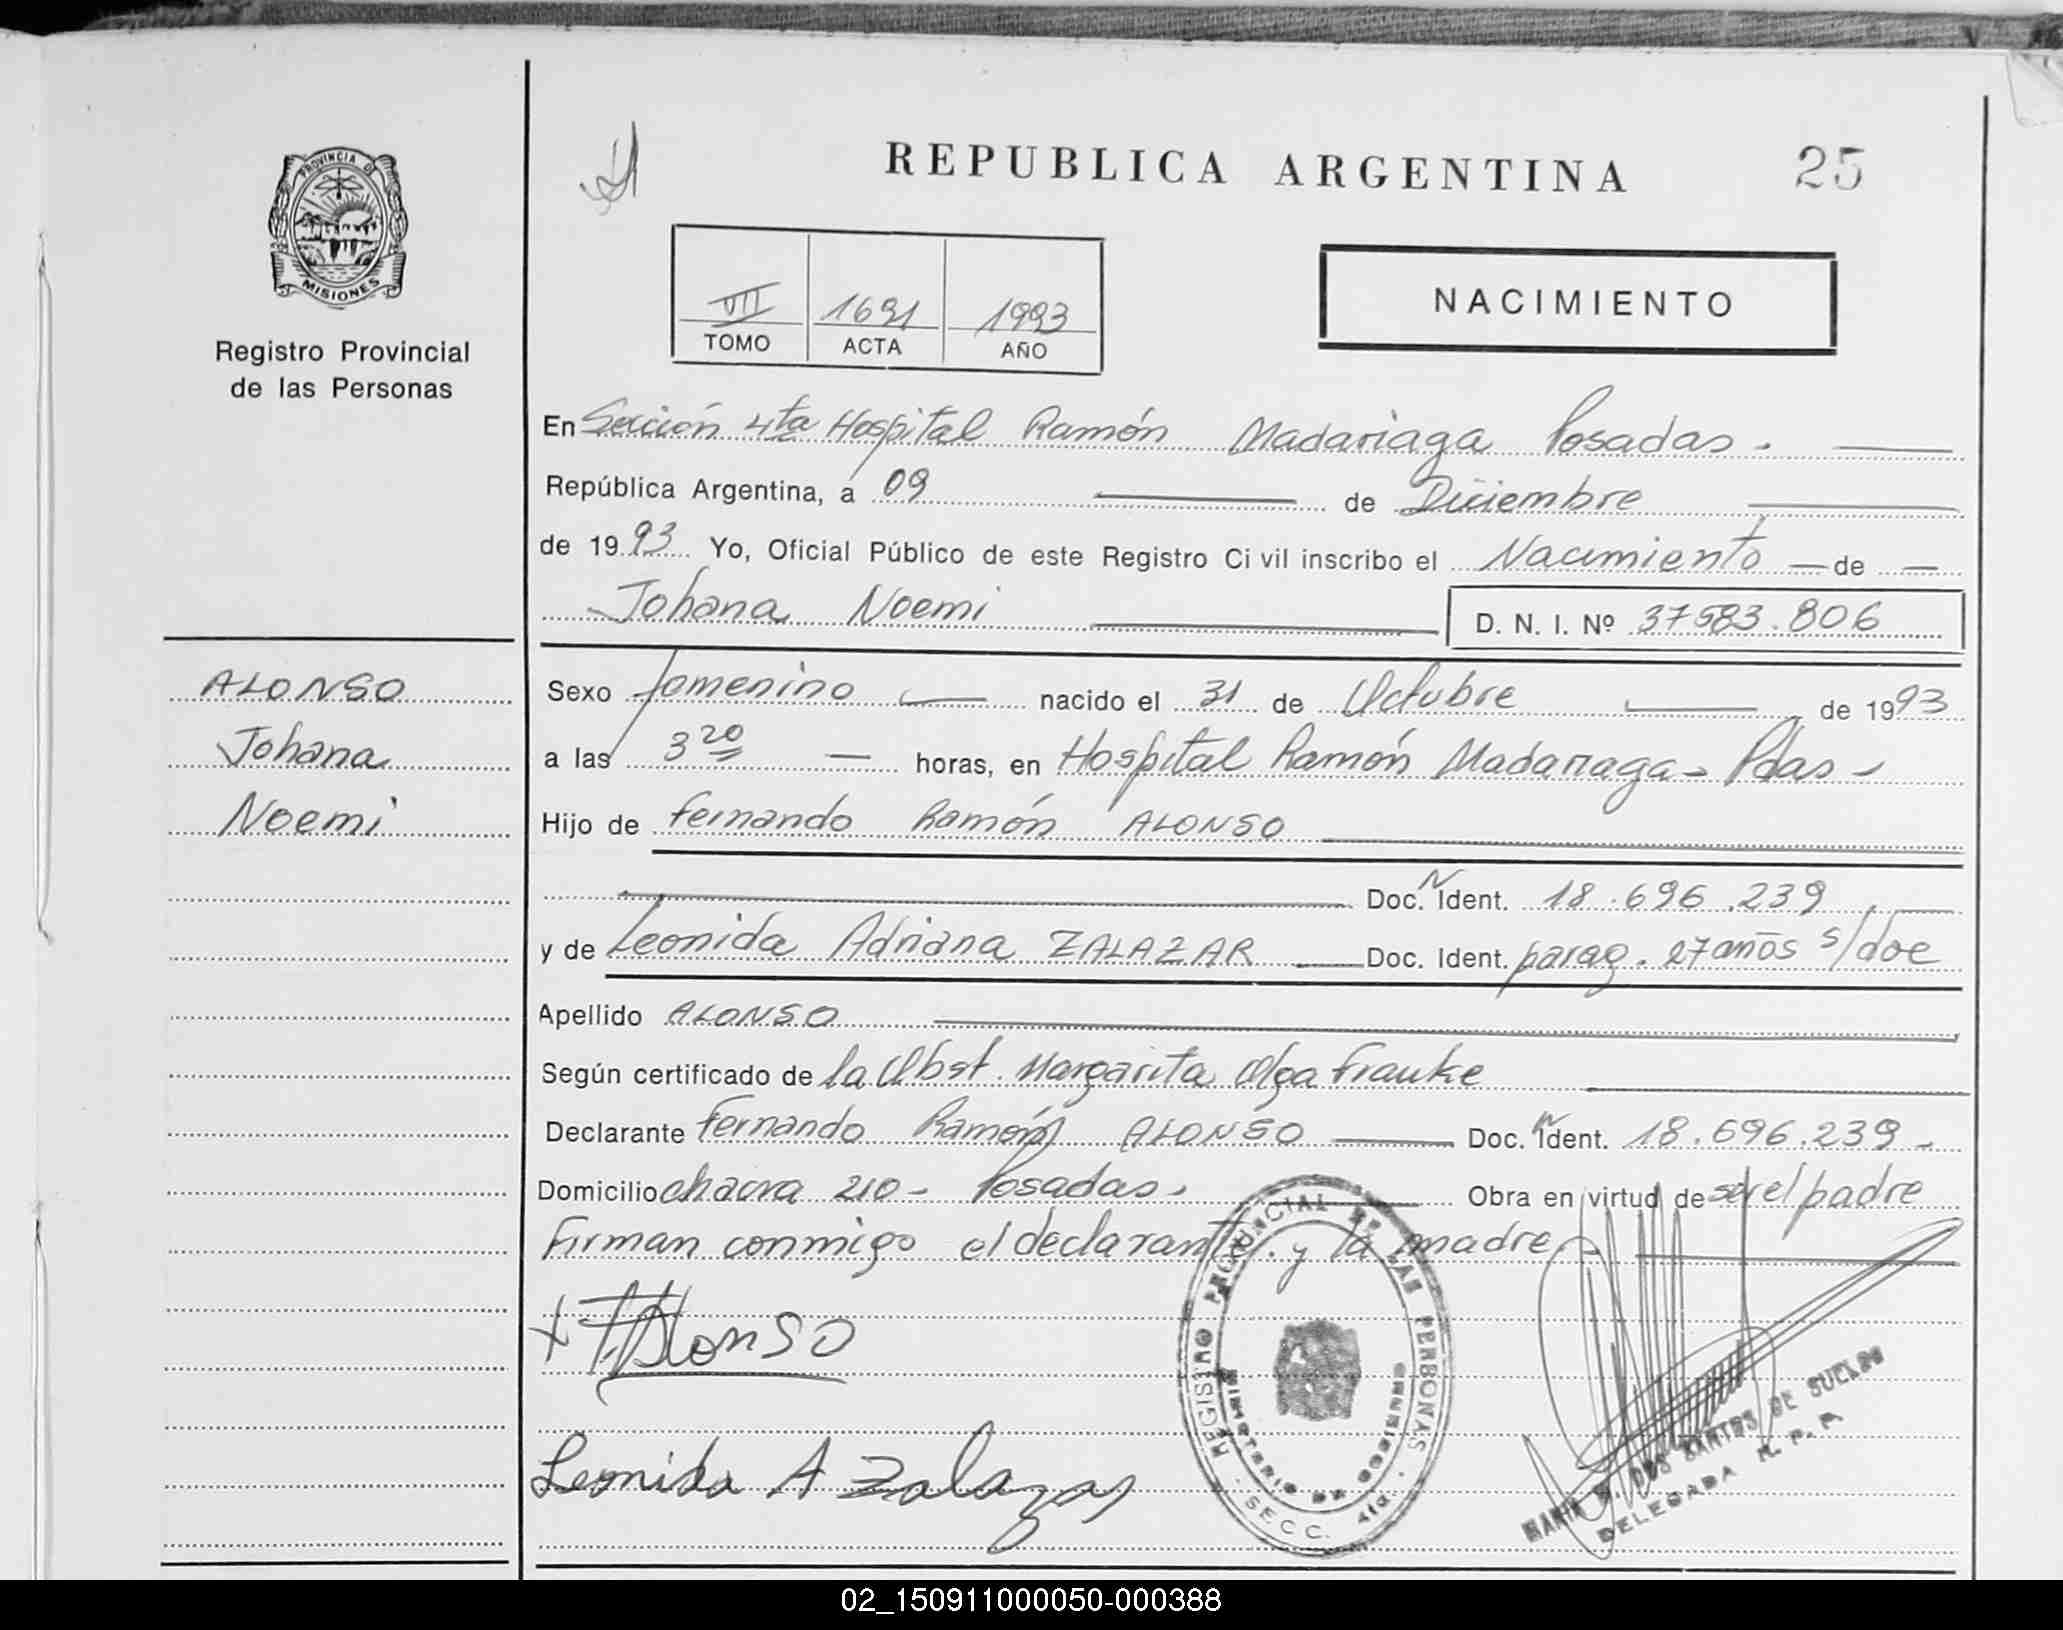 REPUBLICA ARGENTINA
25
PROVINCIA DE
MISIONES
Registro Provincial
de las Personas
VII 1691 1993
TOMO ACTA AÑO
NACIMIENTO
En Sección 4ta Hospital Ramón Madariaga Posadas.
República Argentina, a 09 de Diciembre
de 1993 Yo, Oficial Público de este Registro Civil inscribo el Nacimiento de
Johana Noemi D. N. I. Nº 37583.806
ALONSO
Johana
Noemi
Sexo femenino nacido el 31 de Octubre de 1993
a las 3 20 horas, en Hospital Ramón Madariaga - Pdas -
Hijo de Fernando Ramón ALONSO
Doc. N Ident. 18.696.239
y de Leonida Adriana ZALAZAR Doc. Ident. parag. 27 años s/doc
Apellido ALONSO
Según certificado de la Obst. Margarita Olga Frauke
Declarante Fernando Ramón ALONSO Doc. N Ident. 18.696.239 -
Domicilio chacra 210 - Posadas. Obra en virtud de ser el padre
Firman conmigo el declarante y la madre.
F. Alonso
Leonida A Zalazar
REGISTRO PROVINCIAL DE LAS PERSONAS
MINISTERIO DE GOBIERNO
SECC. 4ta.
DOS SANTOS DE
DELEGADA R. P. P.
02_150911000050-000388